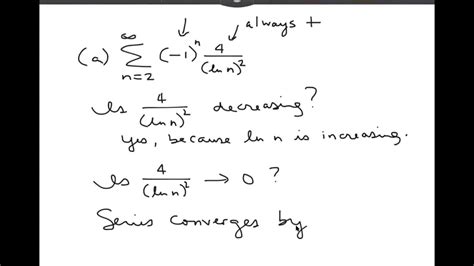 always +
(a) ∞ ∑ n=2 (-1)^n 4/(ln n)^2
Is 4/(ln n)^2 decreasing?
Yes, because ln n is increasing.
Is 4/(ln n)^2 → 0 ?
Series converges by